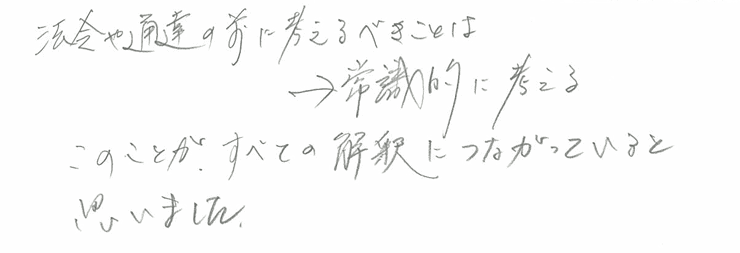 法令や通達の前に考えるべきことは
→常識的に考える
このことが、すべての解釈につながっていると
思いました。